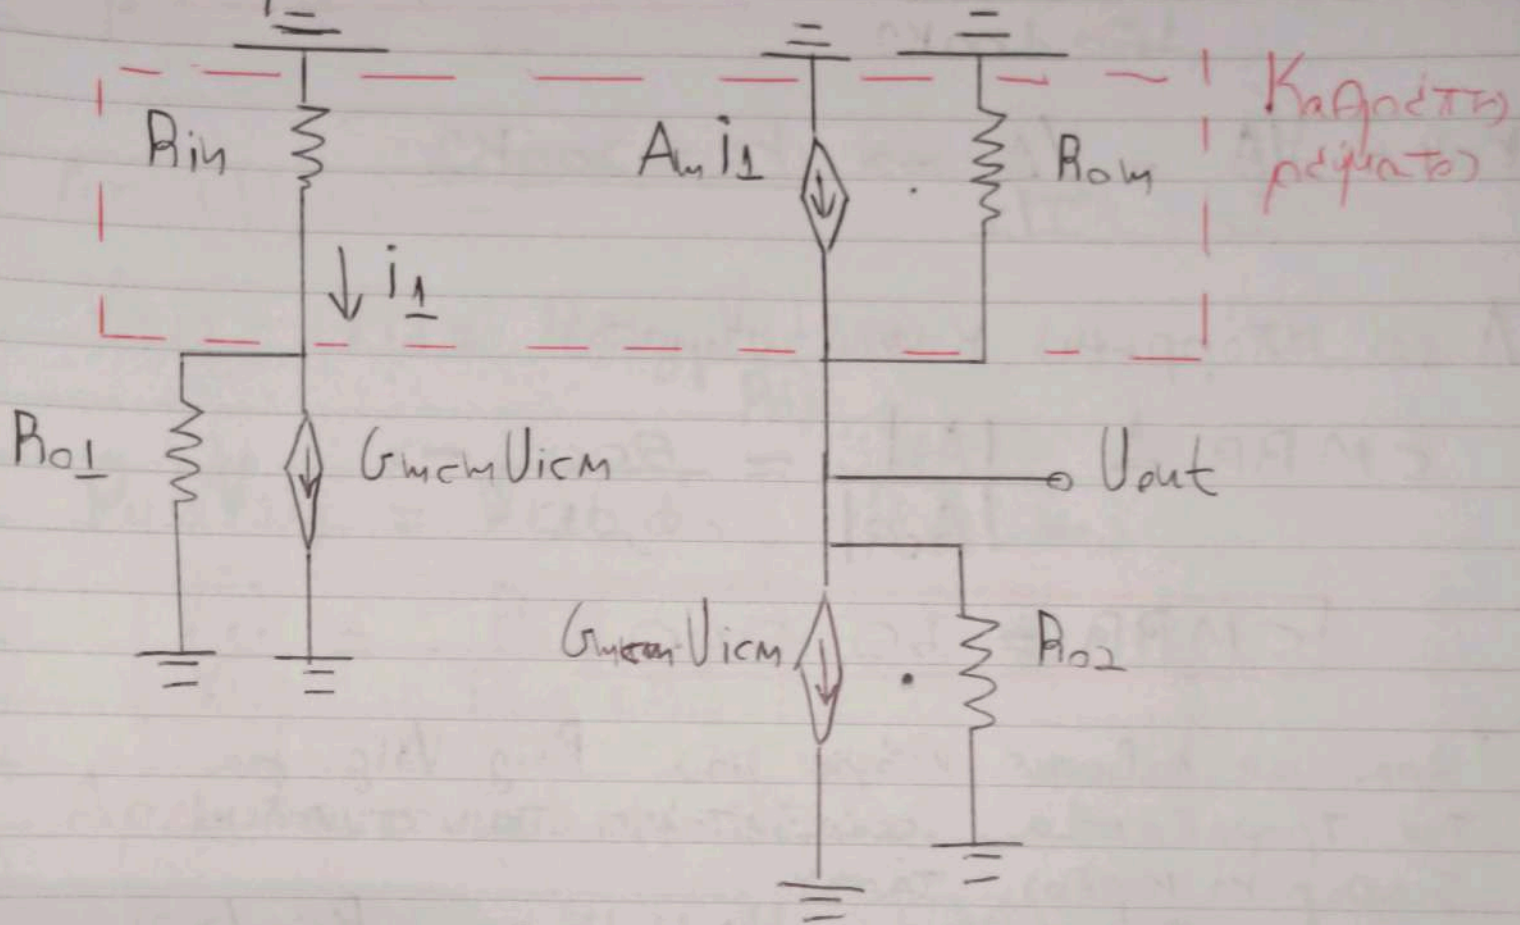 Rin
Am i1
Rom
Καθρέπτη
ρεύματος
i1
Ro1
Gmcm Uicm
Uout
Gmcm Uicm
Ro2